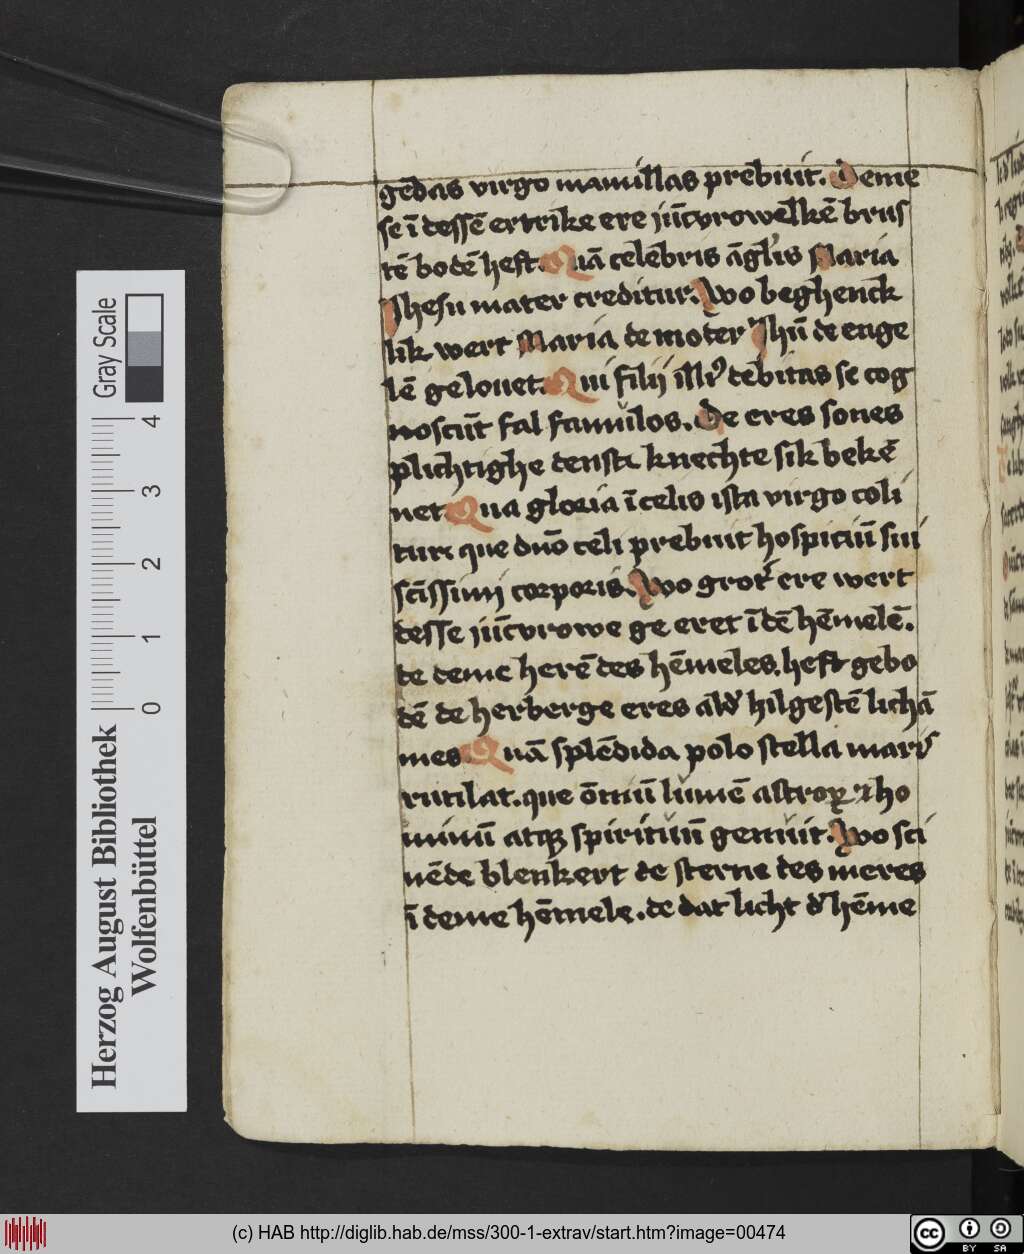 gēdas virgo mamillas prebiuit. Deme
se ī dessē ertrike ere jūcvrowelkē brus
tē bodē heft. Quā celebris āgl'is Maria
Jhesu mater creditur. Wo beghenck
lik wert Maria de moter Jhū de enge
lē gelouet. Qui filij illi⁹ debitas se cog
noscūt fal famulos. De eres sones
plichtighe denstr knechte sik bekē
net Qua gloria ī celis ista virgo coli
tur. que dno celi prebuit hospiciū sui
scīssimi corporis. Wo grot' ere wert
desse jūcvrowe ge eret ī dē hēmelē.
de deme herē des hēmeles. heft gebo
dē de herberge eres ald' hilgestē lichā
mes. Quā splēdida polo stella maris
rutilat. que ōniū lumē astroꝝ ⁊ ho
minū atqꝫ spirituū genuit. Wo sci
nēde blenkert de sterne des meres
ī deme hēmele. de dat licht d' hēme
Gray Scale
4
3
2
1
0
Herzog August Bibliothek
Wolfenbüttel
(c) HAB http://diglib.hab.de/mss/300-1-extrav/start.htm?image=00474
cc BY SA